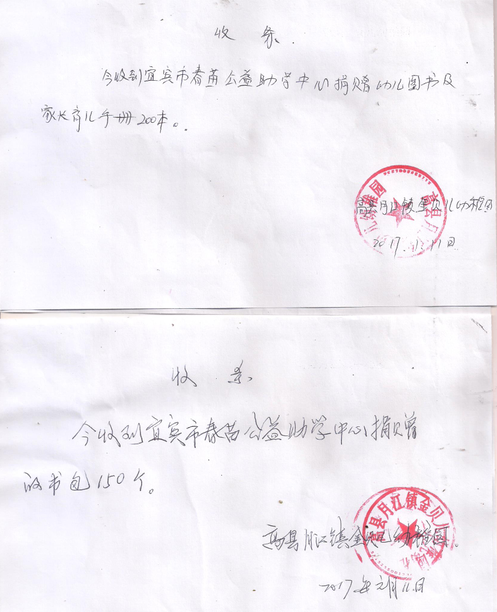 收条
今收到宜宾市春苗公益助学中心捐赠幼儿图书及
家长育儿手册200本。
高县月江镇金贝儿幼稚园
2017.
收条
今收到宜宾市春苗公益助学中心捐赠
的书包150个。
高县月江镇金贝儿幼稚园
2017年2月11日